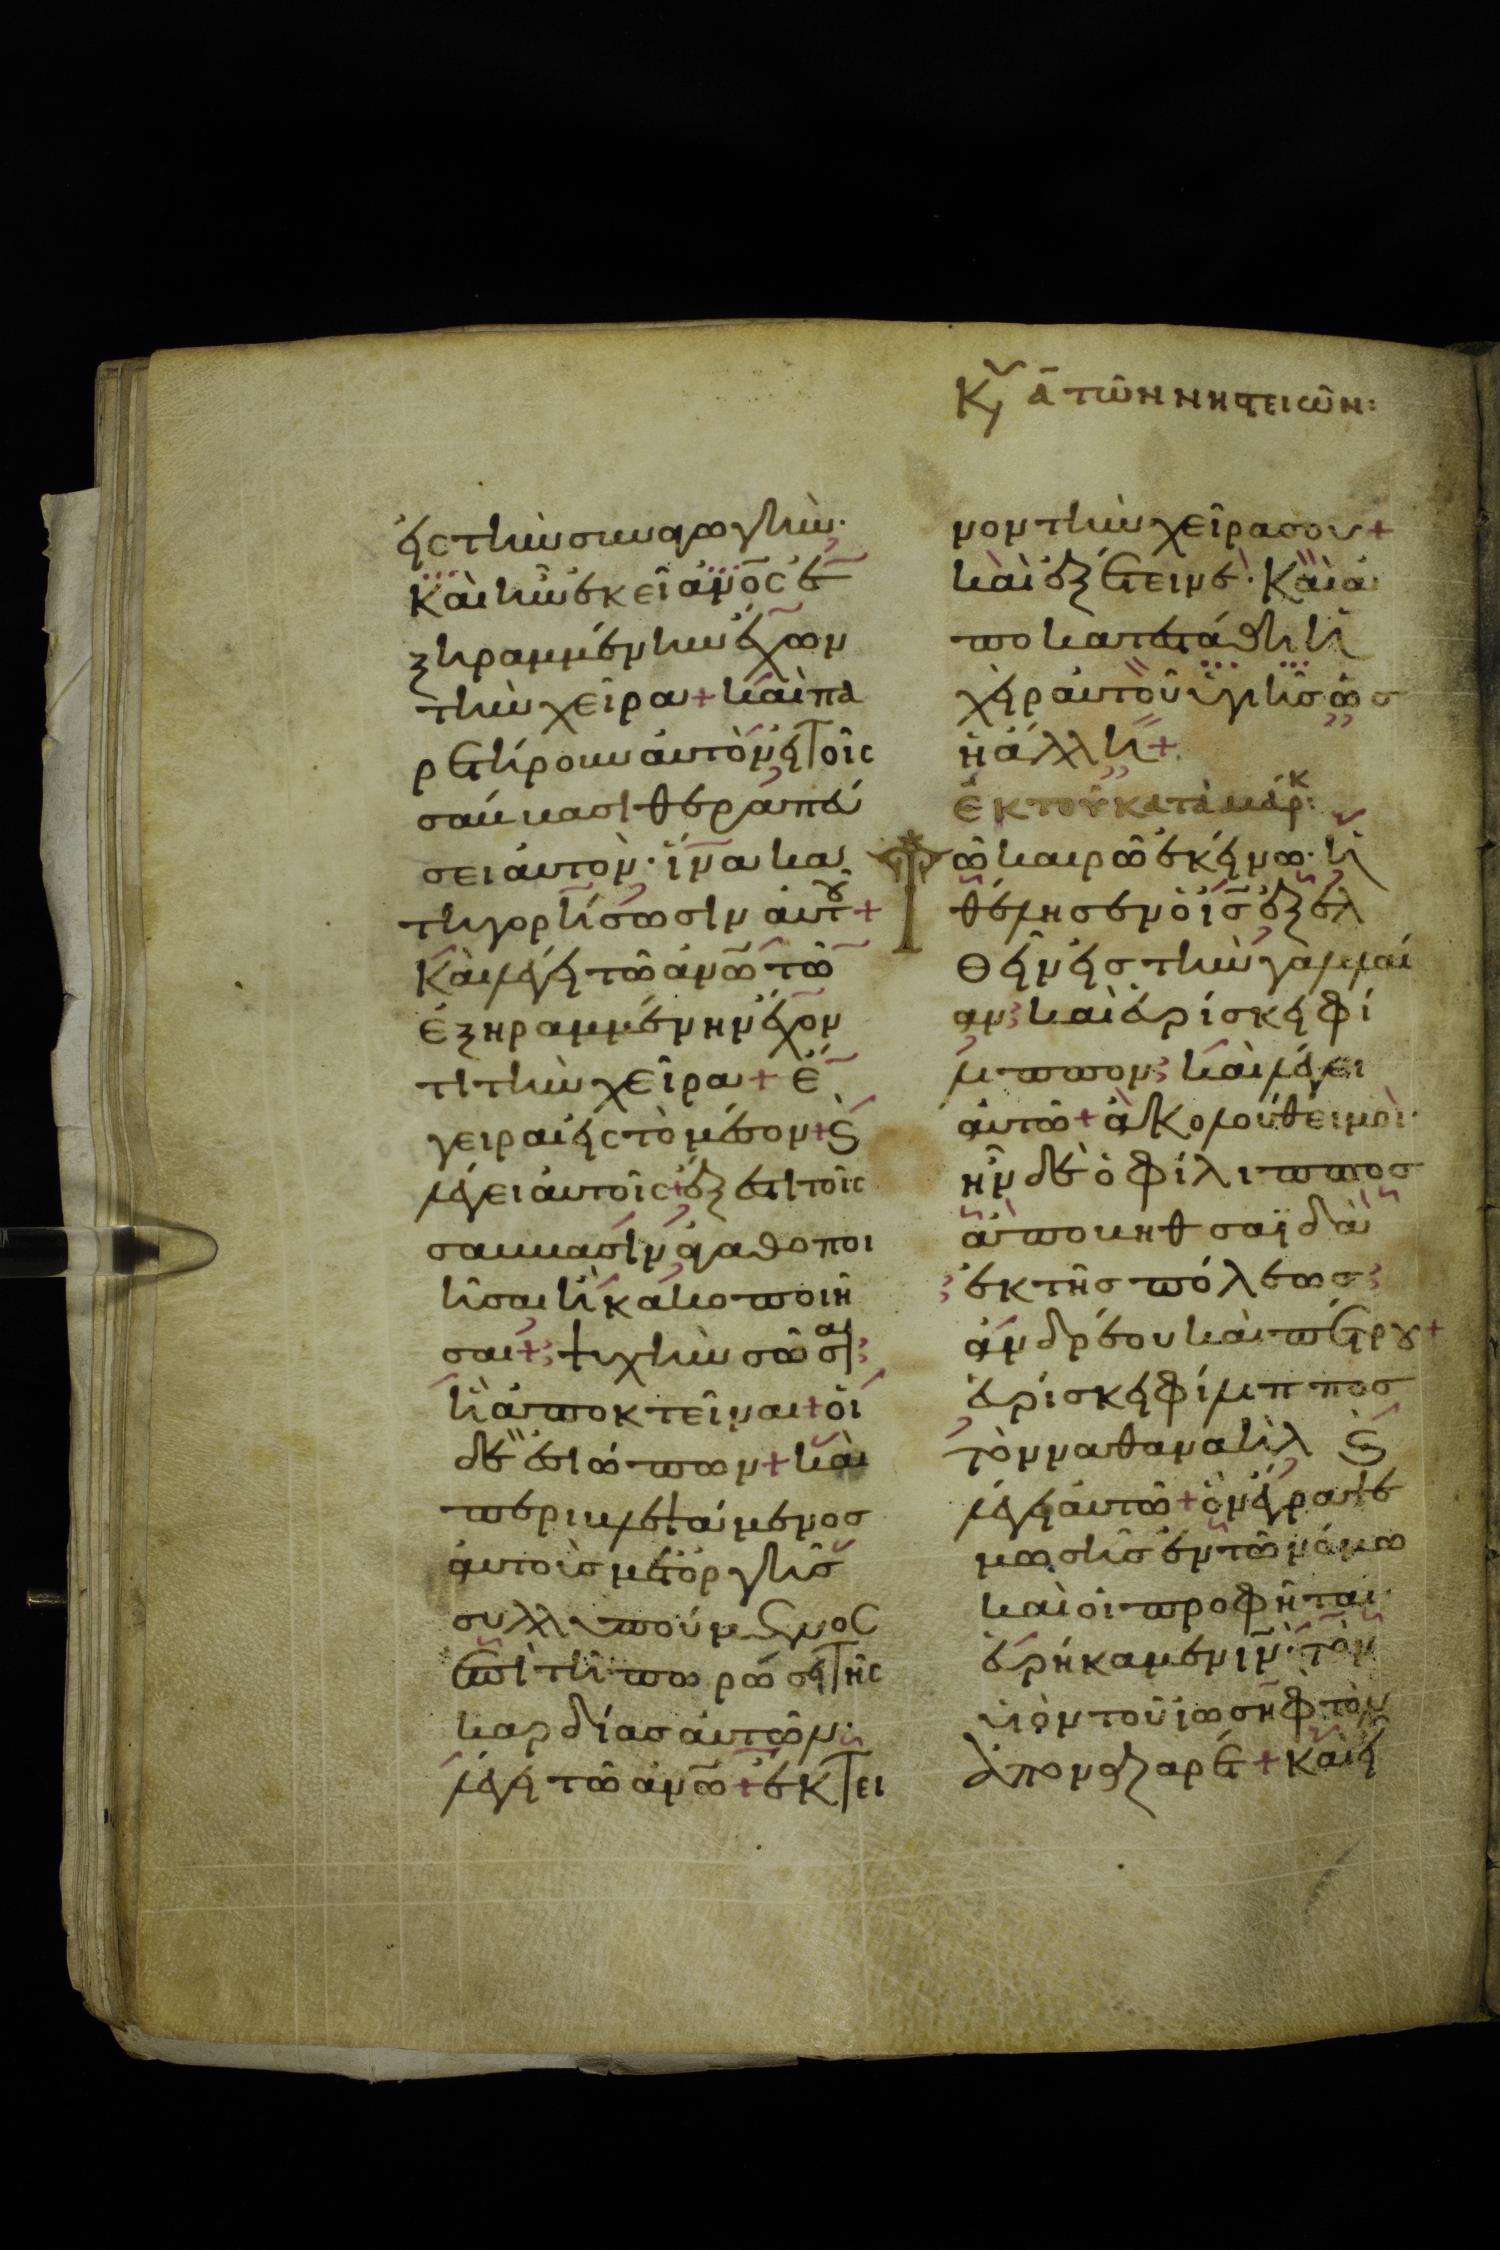 Κυ ᾱ τῶν νηστειῶν:
εἰς τὴν συναγωγὴν·
Καὶ ἦν ἐκεῖ ἄνος ἐ
ξηραμμένην ἔχων
τὴν χεῖρα + καὶ πα
ρετήρουν αὐτὸν εἰ τοῖς
σάμμασι θεραπεύ
σει αὐτὸν· ἵνα κα
τηγορήσωσιν αὐτοῦ +
Καὶ λέγει τῶ ἀνω τῶ
ἐξηραμμένην ἔχον
τι τὴν χεῖρα + ἔ
γειραι εἰς τὸ μέσον + Ϗ
λέγει αὐτοῖς + ἔξεστι τοῖς
σάμμασιν ἀγαθοποι
ῆσαι ἢ κακοποιῆ
σαι + ψυχὴν σῶσαι
ἢ ἀποκτεῖναι + οἱ
δὲ ἐσιώπων + καὶ
περιβλεψάμενος
αὐτοὺς μετ ὀργῆς
συλλυπούμενος
ἐπὶ τῆ πωρώσει τῆς
καρδίας αὐτῶν·
λέγει τῶ ἀνω + ἔκτει
νον τὴν χεῖρα σου +
καὶ ἐξέτεινε· Καὶ ἀ
ποκατεστάθη ἡ
χεὶρ αὐτοῦ ὑγιὴς ὡς
ἡ ἄλλη +
Ἐκ τοῦ κατὰ μάρκ:
Τῶ καιρῶ ἐκείνω· ἠ
θέλησεν ὁ ις ἐξελ
θεῖν εἰς τὴν γαλιλαί
αν· καὶ εὑρίσκει φί
λιππον· καὶ λέγει
αὐτῶ + ἀκολούθει μοὶ·
ἦν δὲ ὁ φίλιππος
ἀπὸ βηθσαϊδὰ
ἐκ τῆς πόλεως
ἀνδρέου καὶ πέτρου +
εὑρίσκει φίλιππος
τὸν ναθαναὴλ Ϗ
λέγει αὐτῶ + ὃν ἔγραψε
μωσῆς ἐν τῶ νόμω
καὶ οἱ προφῆται·
εὑρήκαμεν ιν· τὸν
υἱὸν τοῦ ἰωσὴφ τὸν
ἀπο ναζαρέτ + καὶ εἶ